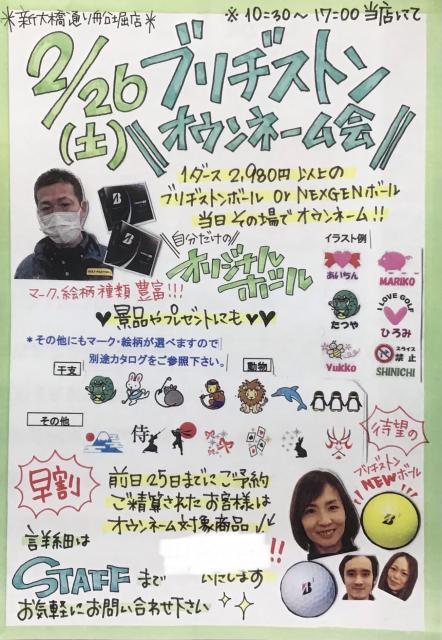 ＊新大橋通り船堀店＊
※10:30～17:00 当店にて
2/26(土)
ブリヂストン
オウンネーム会
1ダース2,980円以上の
ブリヂストンボール or NEXGENボール
当日その場でオウンネーム!!
自分だけの
オリジナルボール
マーク、絵柄種類豊富!!!
景品やプレゼントにも♥♥
イラスト例
あいちん
MARIKO
たつや
I LOVE GOLF
ひろみ
Yukko
スライス
禁止
SHINICHI
＊その他にもマーク・絵柄が選べますので
別途カタログをご参照下さい。
干支
動物
その他
侍
早割
前日25日までにご予約
ご精算されたお客様は
オウンネーム対象商品
!!
待望の
ブリヂストン
NEWボール
詳細は
STAFFまで
いたします
お気軽にお問い合わせ下さい
B
B